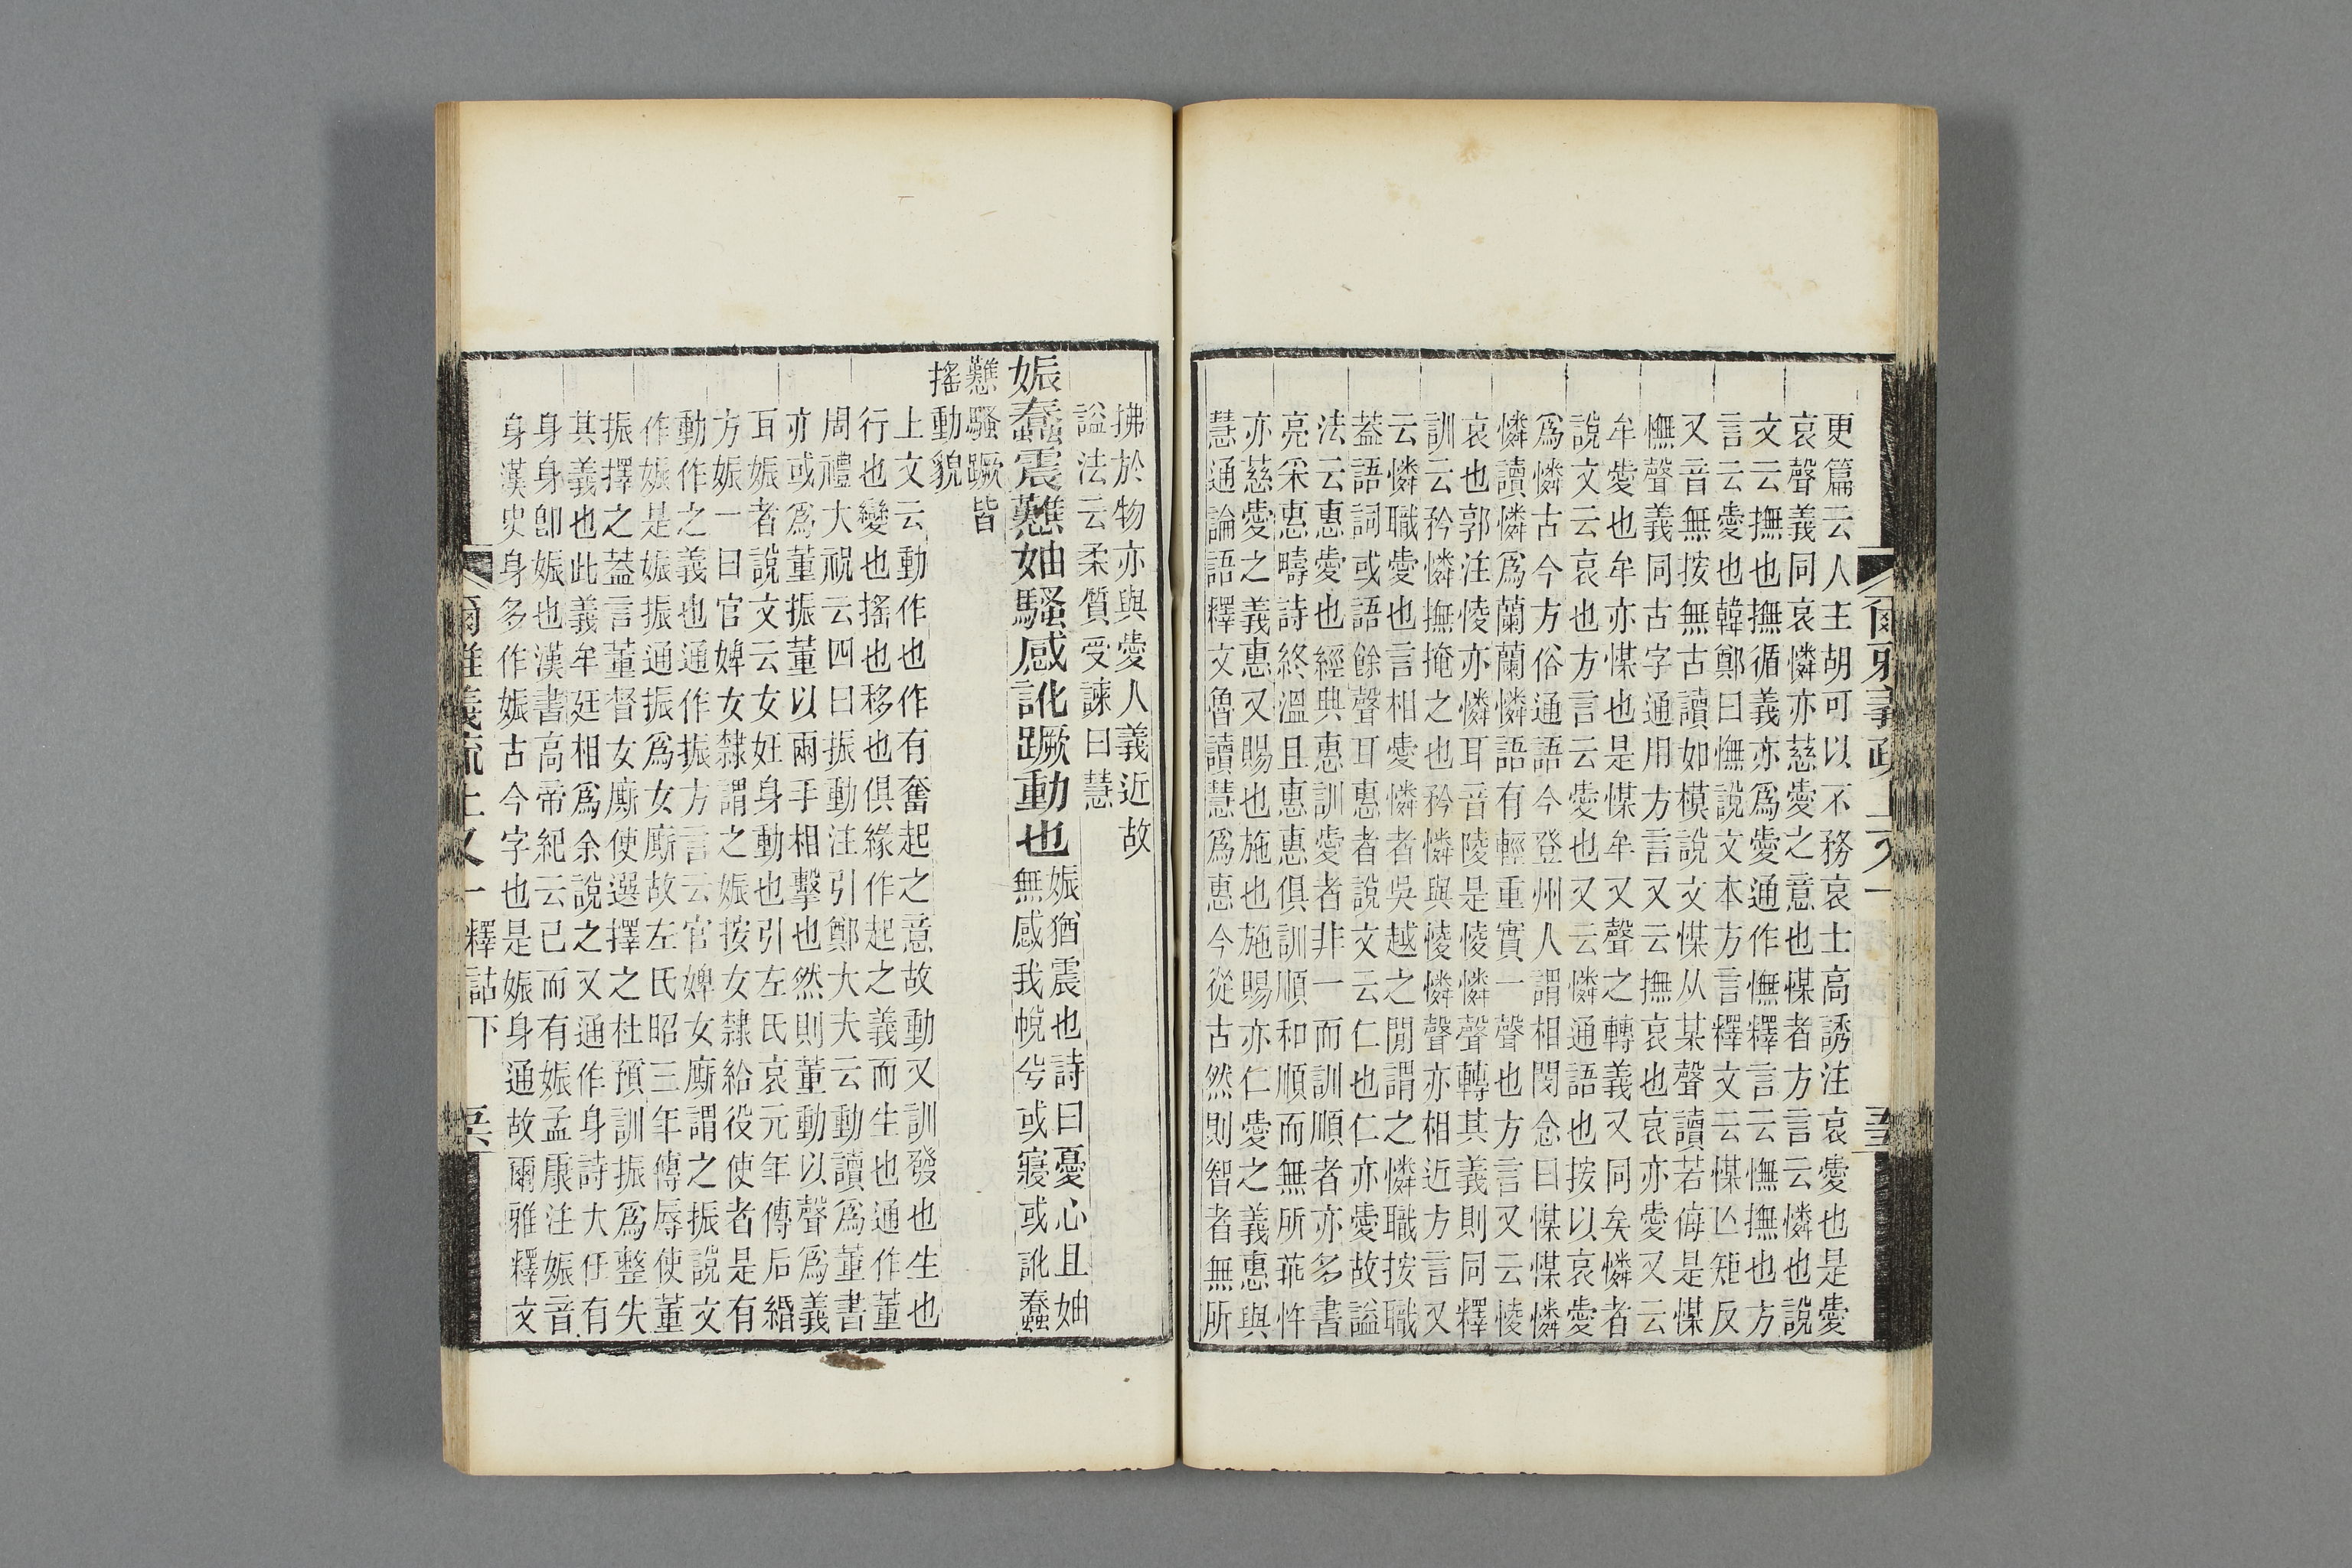 爾雅義疏上又一
更篇云人主胡可以不務哀士高誘注哀愛也是愛
哀聲義同哀憐亦慈愛之意也㥤者方言云憐也說
文云撫也撫循義亦爲愛通作憮釋言云憮撫也方
言云愛也韓鄭曰憮說文本方言釋文云㥤亾矩反
又音無按無古讀如模說文㥤从某聲讀若侮是㥤
憮聲義同古字通用方言又云撫哀也哀亦愛又云
牟愛也牟亦㥤也是㥤牟又聲之轉義又同矣憐者
說文云哀也方言云愛也又云憐通語也按以哀愛
爲憐古今方俗通語今登州人謂相閔念曰㥤㥤憐
憐讀憐爲蘭蘭憐語有輕重實一聲也方言又云㥄
哀也郭注㥄亦憐耳音陵是㥄憐聲轉其義則同釋
訓云矜憐撫掩之也矜憐與㥄憐聲亦相近方言又
云憐職愛也言相愛憐者吳越之閒謂之憐職按職
葢語詞或語餘聲耳惠者說文云仁也仁亦愛故謚
法云惠愛也經典惠訓愛者非一而訓順者亦多書
亮采惠疇詩終溫且惠惠俱訓順和順而無所乖忤
亦慈愛之義惠又賜也施也施賜亦仁愛之義惠與
慧通論語釋文魯讀慧爲惠今從古然則智者無所
拂於物亦與愛人義近故
謚法云柔質受諫曰慧
娠蠢震戁妯騷感訛蹶動也
娠猶震也詩曰憂心且妯
無感我帨兮或寢或訛蠢
戁騷蹶皆
搖動貌
上文云動作也作有奮起之意故動又訓發也生也
行也變也搖也移也俱緣作起之義而生也通作董
周禮大祝云四曰振動注引鄭大夫云動讀爲董書
亦或爲董振董以兩手相擊也然則董動以聲爲義
耳娠者說文云女妊身動也引左氏哀元年傳后緡
方娠一曰官婢女隸謂之娠按女隸給役使者是有
動作之義也通作振方言云官婢女廝謂之振說文
作娠是娠振通振爲女廝故左氏昭三年傳辱使董
振擇之葢言董督女廝使選擇之杜預訓振爲整失
其義也此義牟廷相爲余說之又通作身詩大任有
身身卽娠也漢書高帝紀云已而有娠孟康注娠音
身漢史身多作娠古今字也是娠身通故爾雅釋文
爾雅義疏上又一
釋詁下